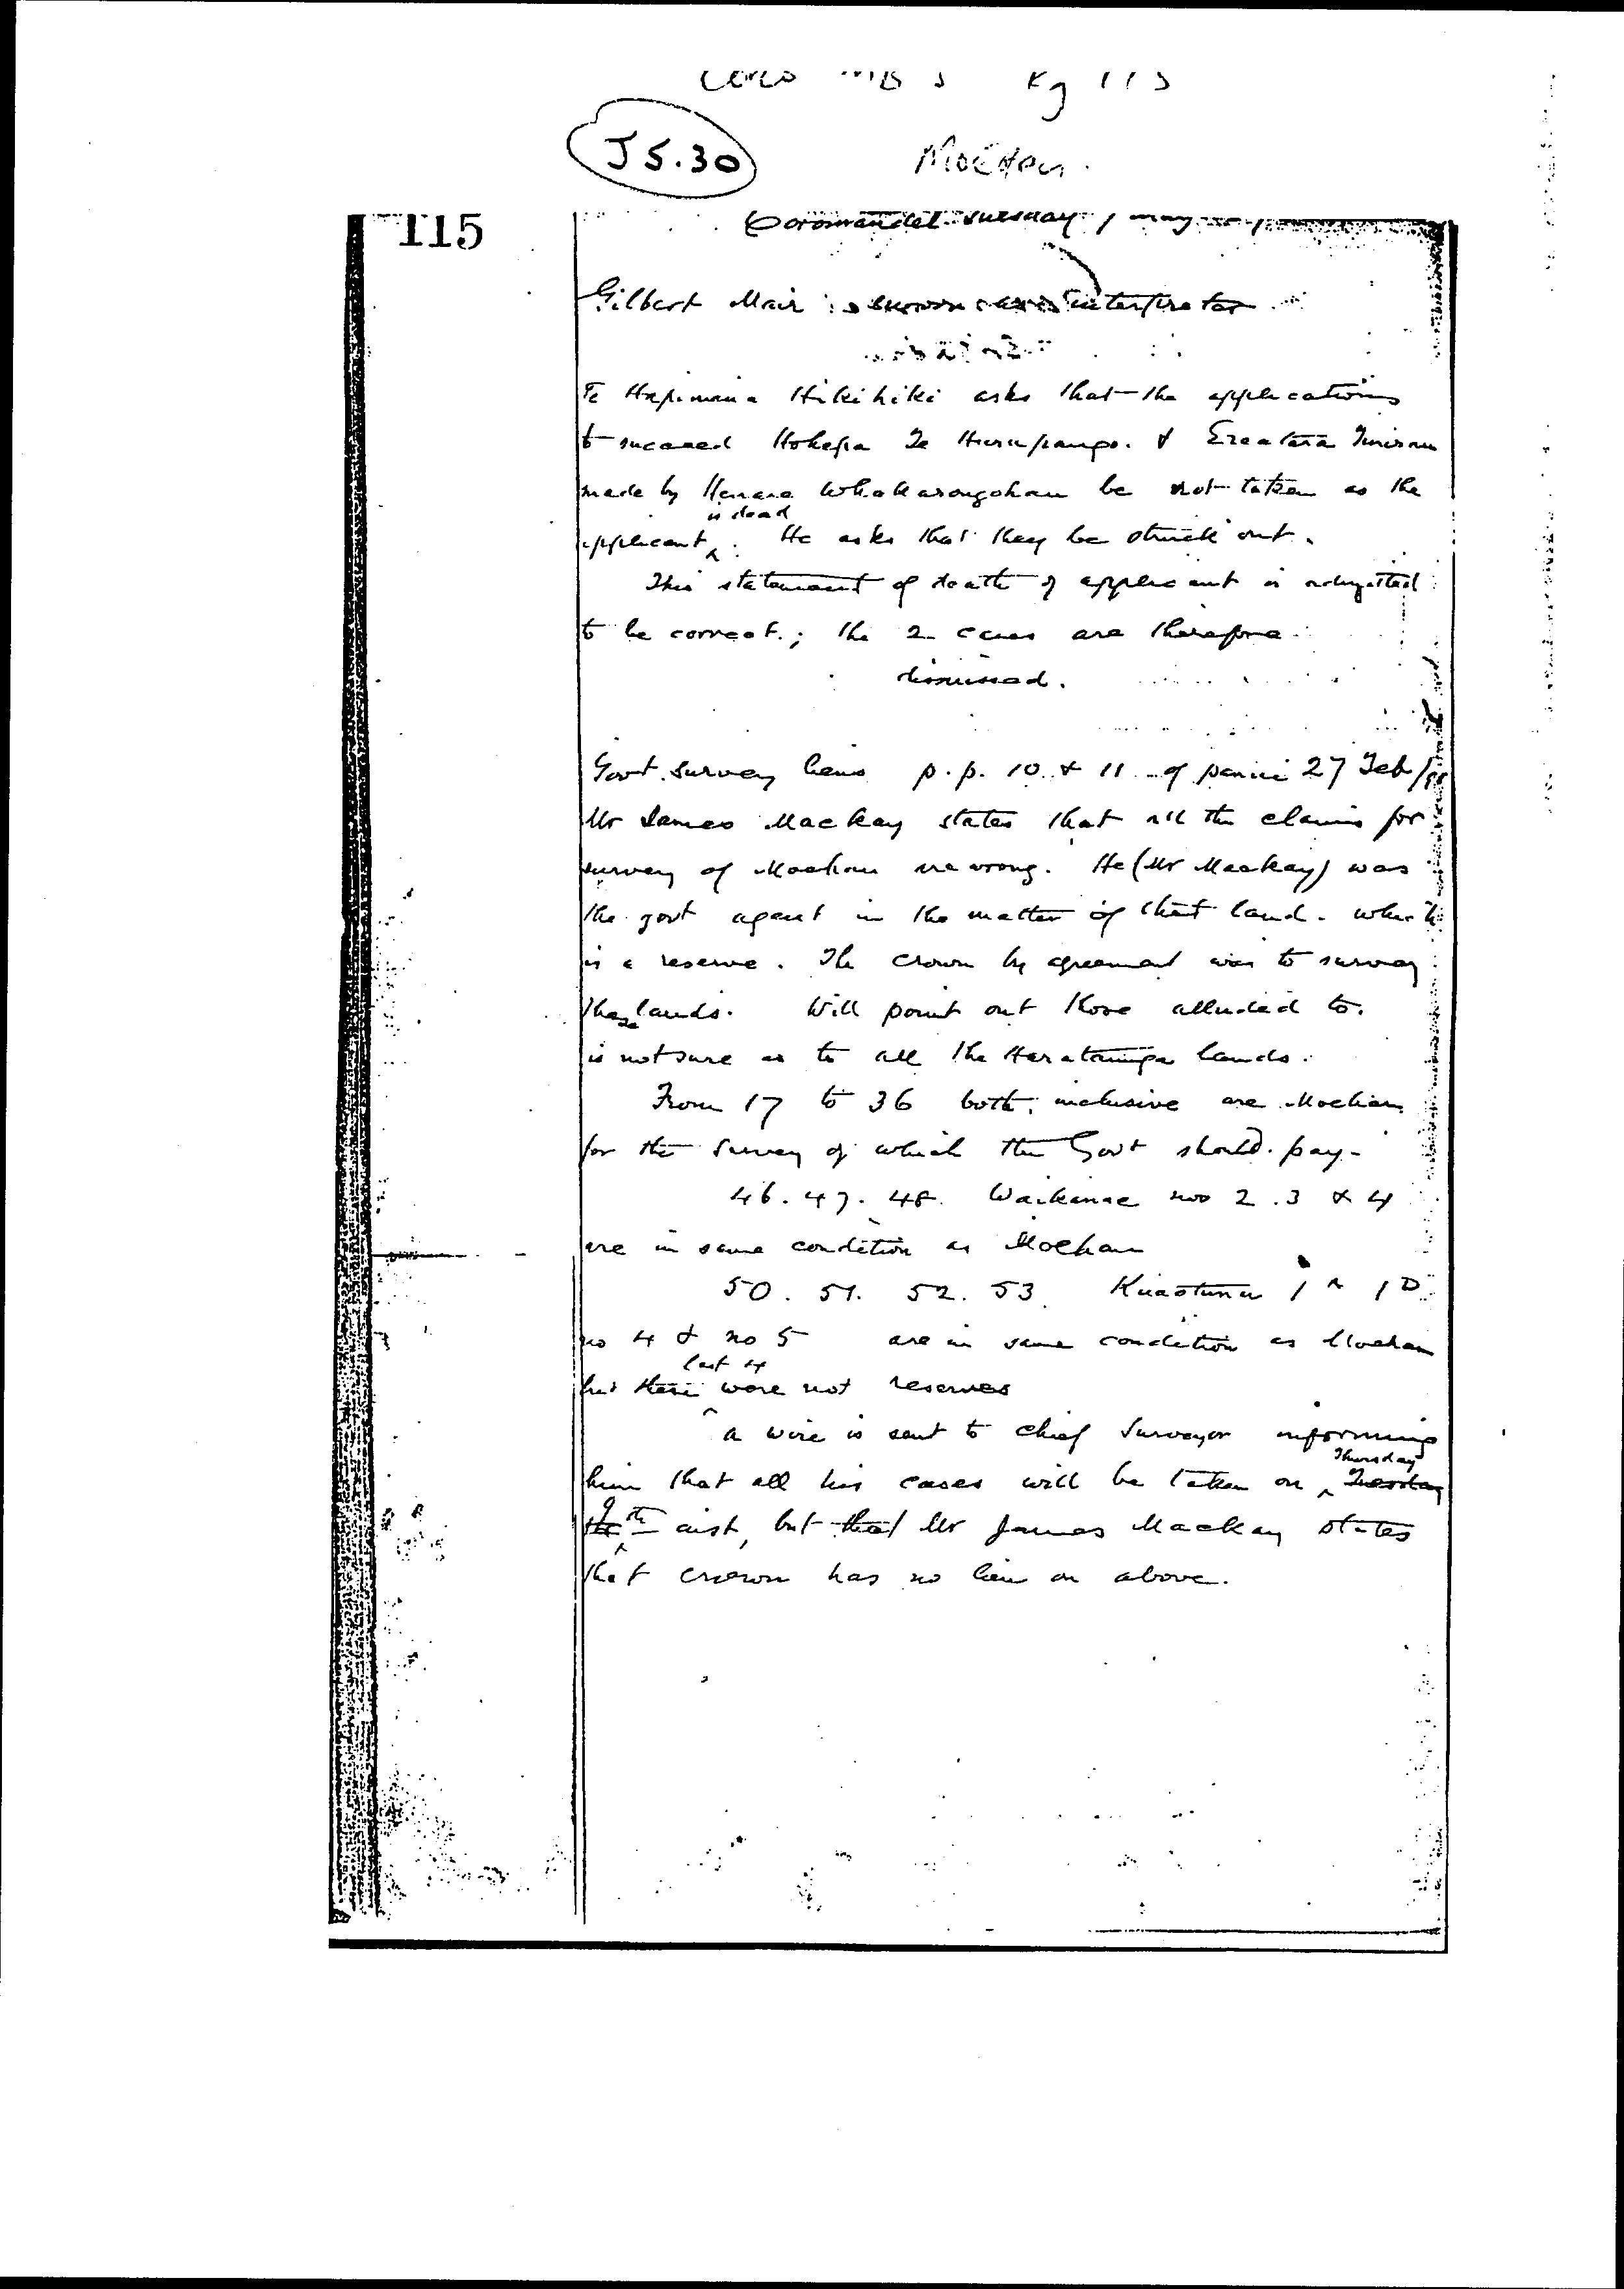 MB Pg 115
J5.30
Moehau.
115
Coromandel Tuesday, May
Gilbert Mair is sworn as interpreter
Te Hapimana Hikihiki asks that the applications
to succeed Hohepa Te &
made by Whakarongohau be not taken as the
applicant is dead. He asks that they be struck out.
This statement of death of applicant is admitted
to be correct; the 2 cases are therefore
dismissed.
Govt. Survey liens p.p. 10 & 11 of panui 27 Feb/
Mr James Mackay states that all the claims for
survey of Moehau are wrong. He (Mr Mackay) was
the govt agent in the matter of that land. which
is a reserve. The crown by agreement was to survey
these lands. Will point out those alluded to.
is not sure as to all the Harataunga lands.
From 17 to 36 both inclusive are Moehau
for the survey of which the Govt should pay-
46. 47. 48. Waikanae nos 2. 3 & 4
are in same condition as Moehau
50. 51. 52. 53 Kuaotunu 1A 1D
no 4 & no 5 are in same condition as Moehau
but these last 4 were not reserves
a wire is sent to chief Surveyor informing
him that all his cases will be taken on Thursday Tuesday
the th inst, but that Mr James Mackay states
that crown has no lien on above.